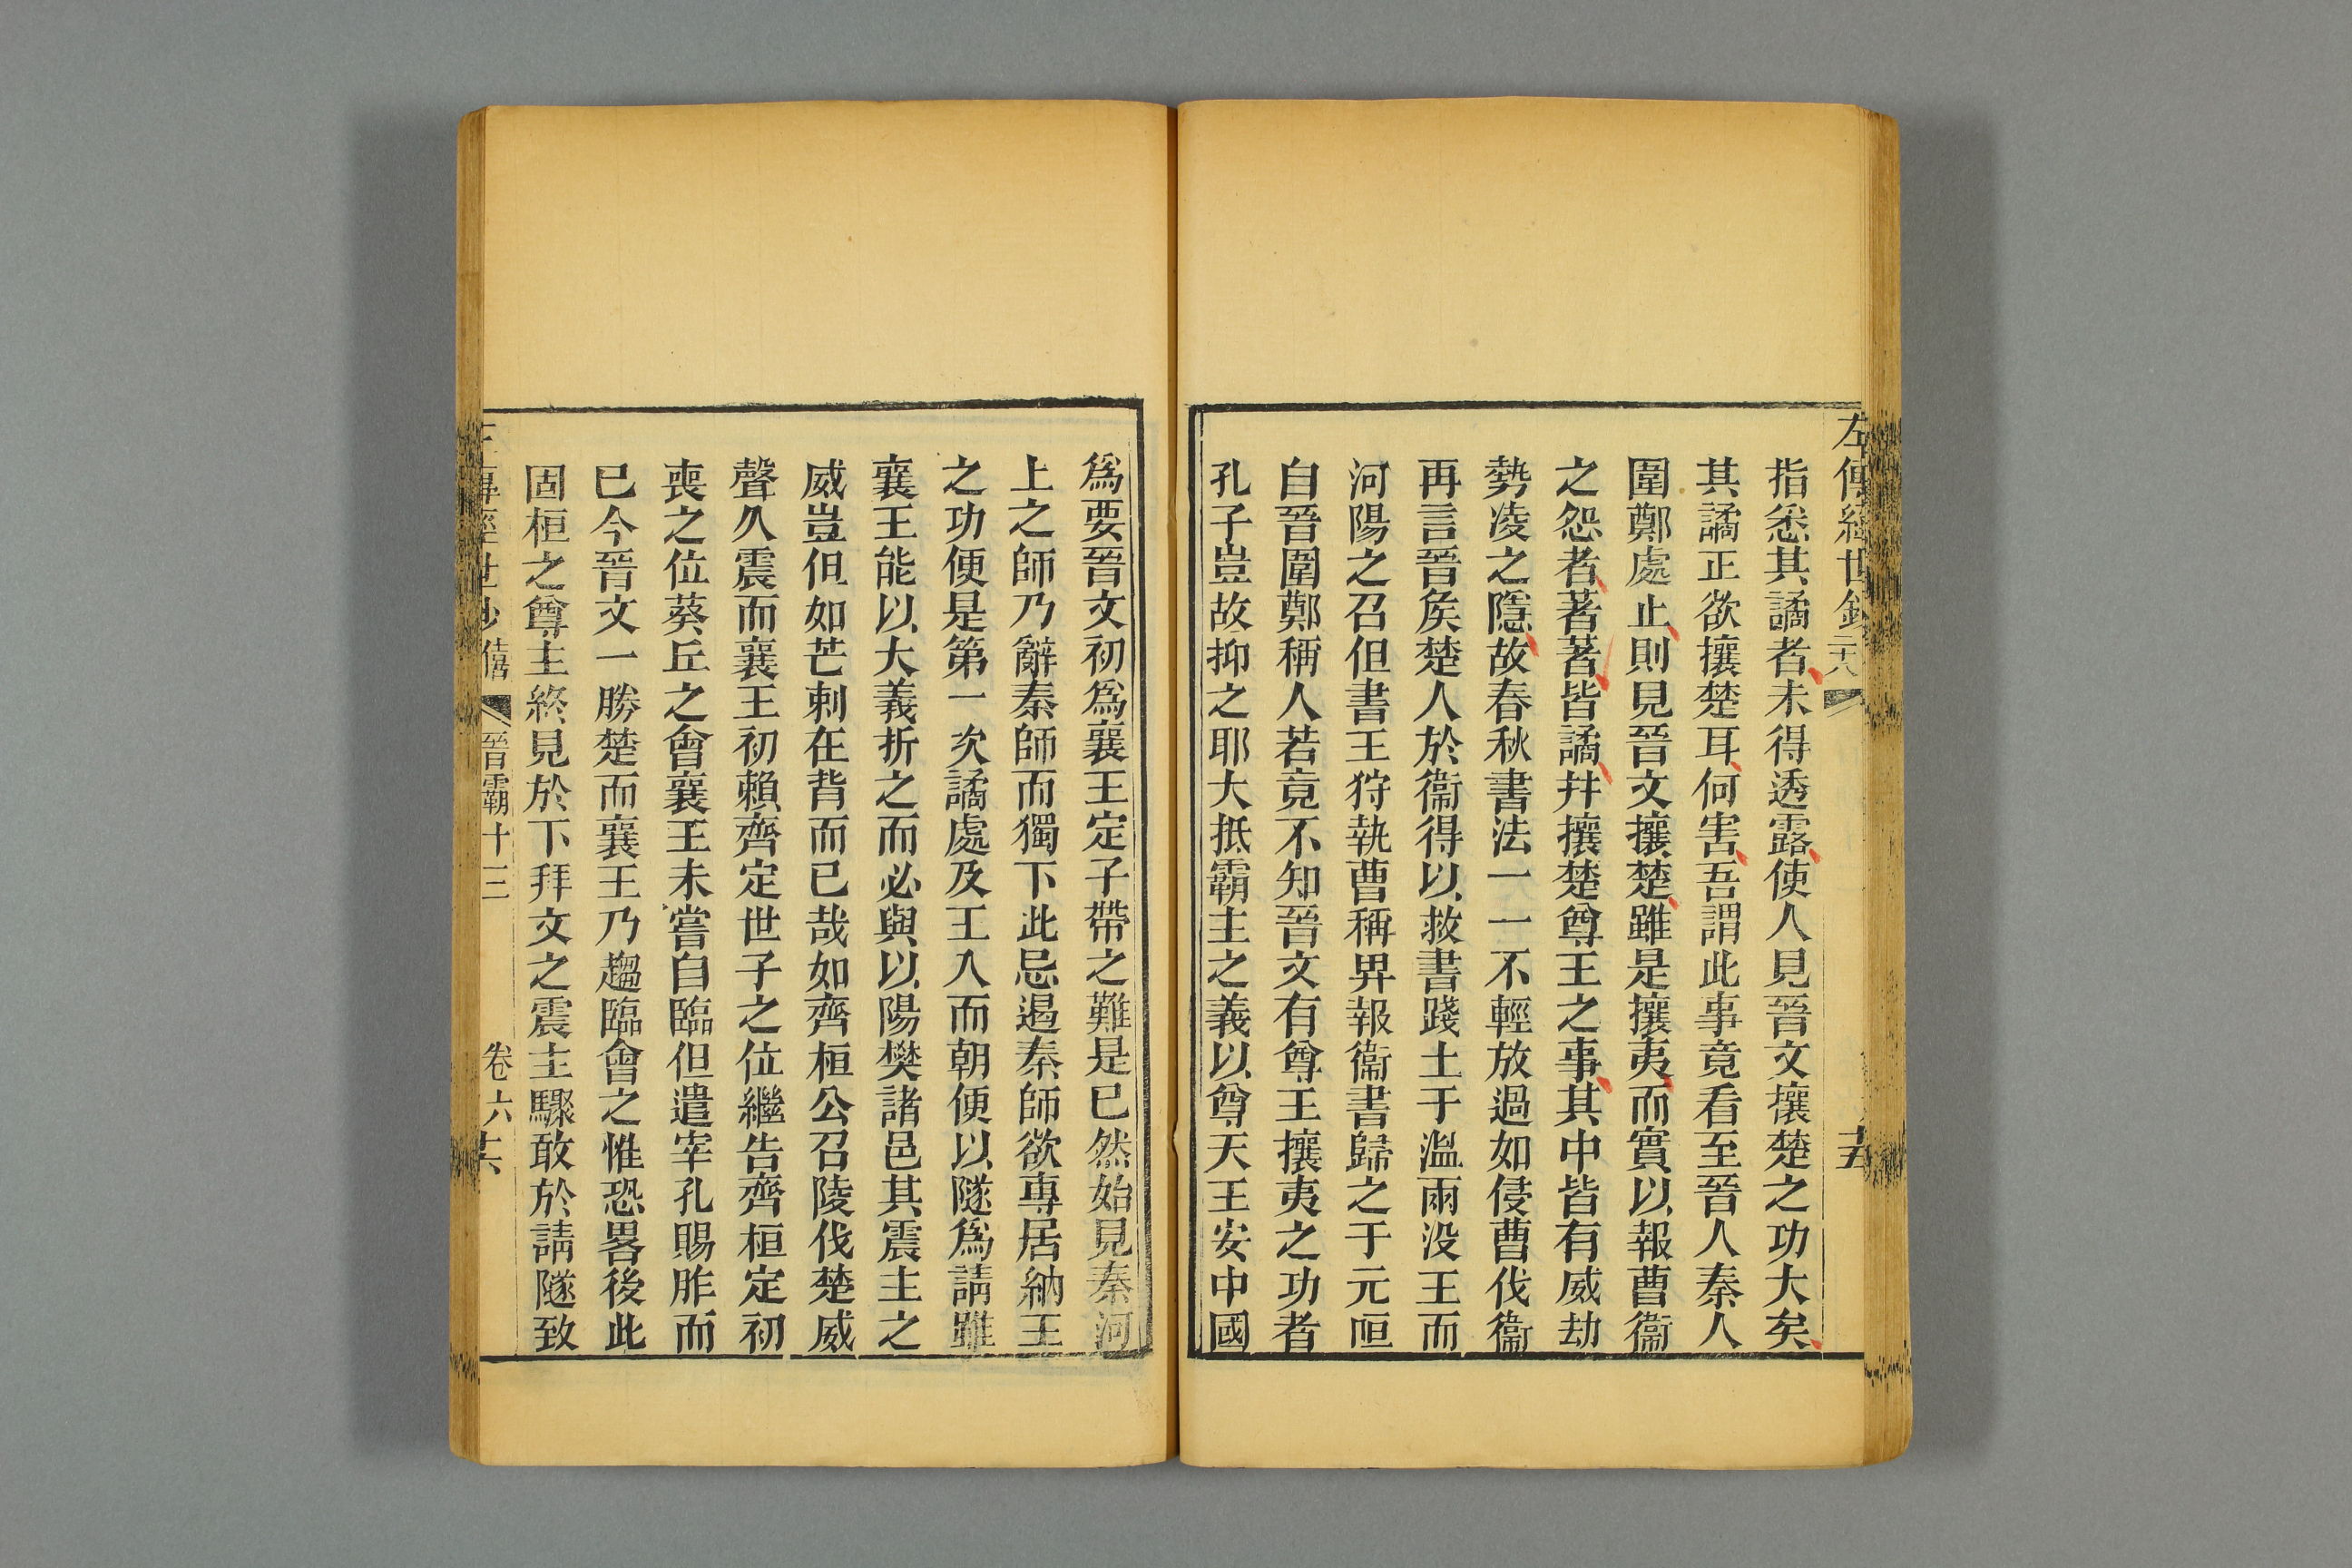 左傳經世鈔
十五
指悉其譎者未得透露使人見晉文攘楚之功大矣
其譎正欲攘楚耳何害吾謂此事竟看至晉人秦人
圍鄭處止則見晉文攘楚雖是攘夷而實以報曹衞
之怨者著著皆譎幷攘楚尊王之事其中皆有威劫
勢凌之隱故春秋書法一一不輕放過如侵曹伐衞
再言晉矦楚人於衞得以救書踐土于溫兩没王而
河陽之召但書王狩執曹稱畀報衞書歸之于元咺
自晉圍鄭稱人若竟不知晉文有尊王攘夷之功者
孔子豈故抑之耶大抵霸主之義以尊天王安中國
爲要晉文初爲襄王定子帶之難是已然始見秦河
上之師乃辭秦師而獨下此忌遏秦師欲專居納王
之功便是第一次譎處及王入而朝便以隧爲請雖
襄王能以大義折之而必與以陽樊諸邑其震主之
威豈但如芒刺在背而已哉如齊桓公召陵伐楚威
聲久震而襄王初賴齊定世子之位繼告齊桓定初
喪之位葵丘之會襄王未嘗自臨但遣宰孔賜胙而
已今晉文一勝楚而襄王乃趨臨會之惟恐畧後此
固桓之尊主終見於下拜文之震主驟敢於請隧致
僖 晉霸十三 卷六